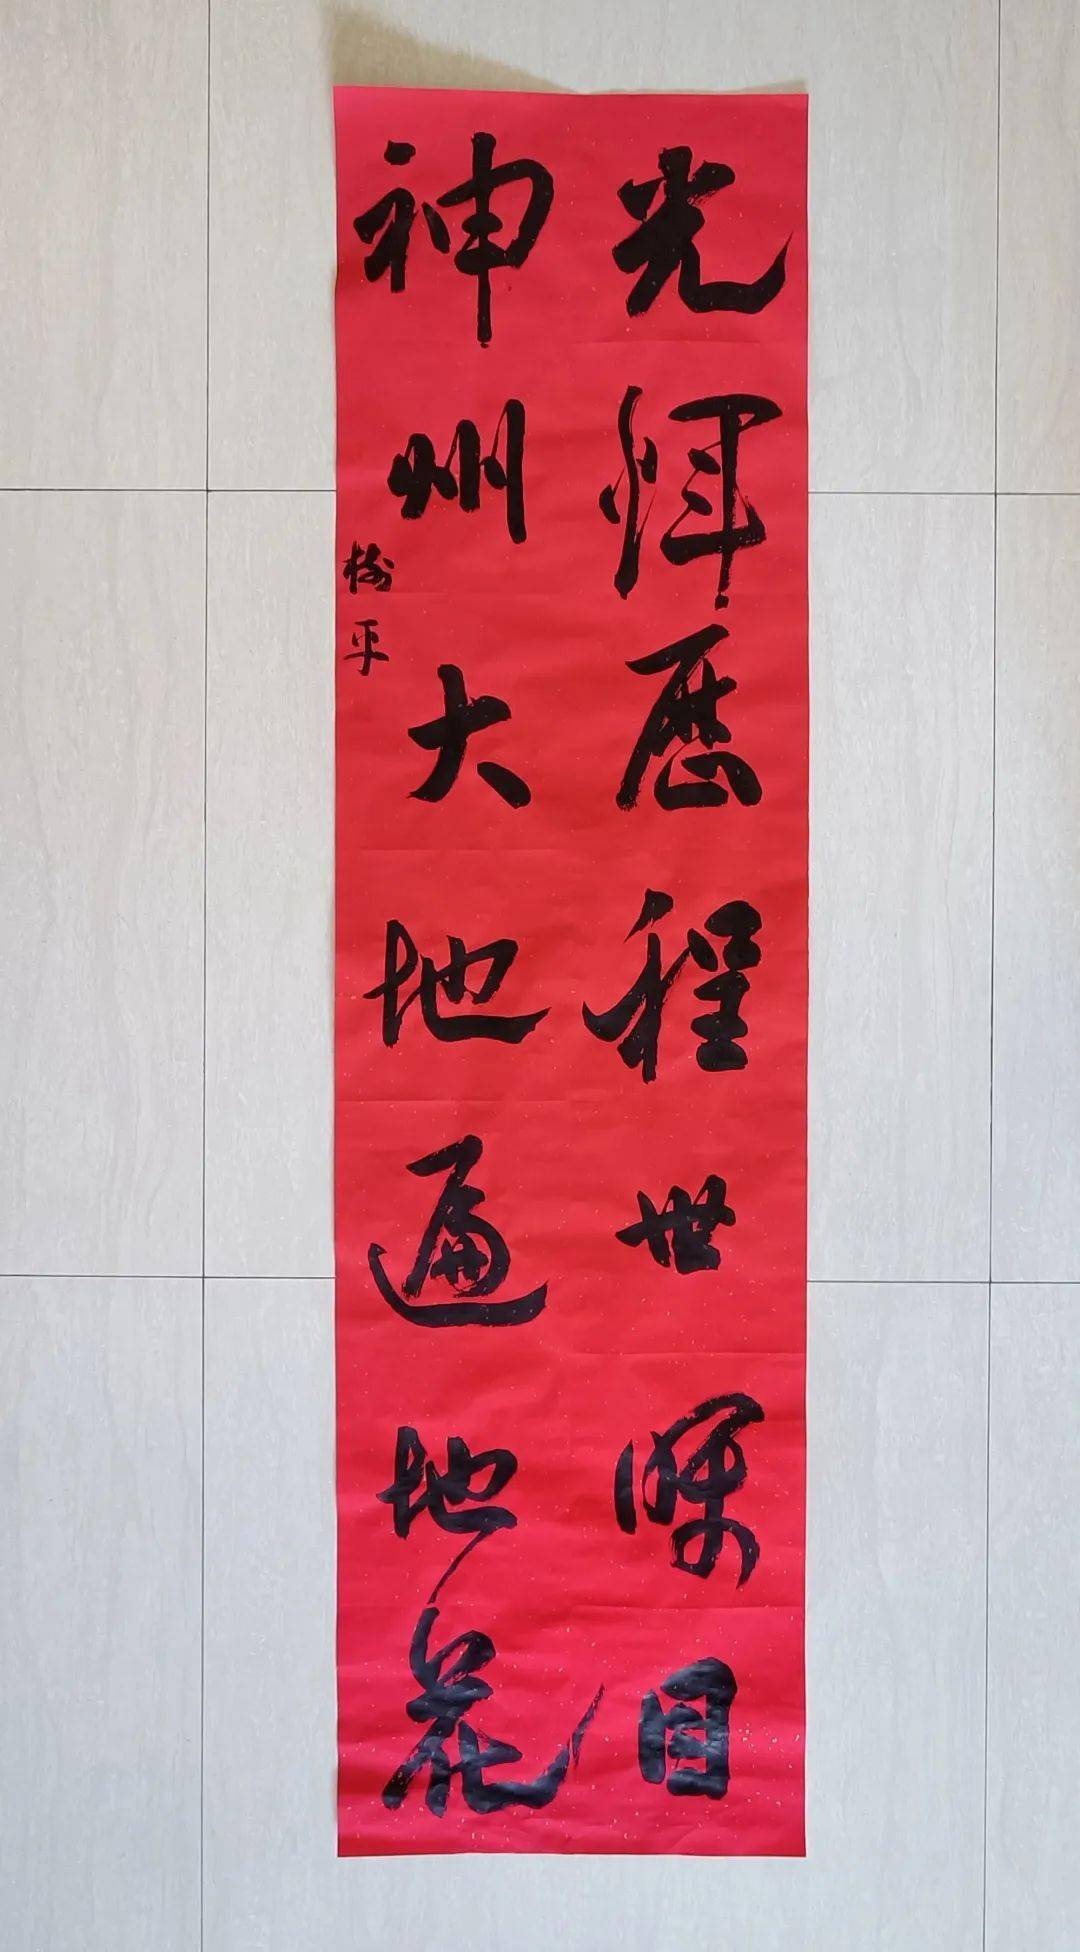 光辉歷程世瞩目
神州大地遍地花
平